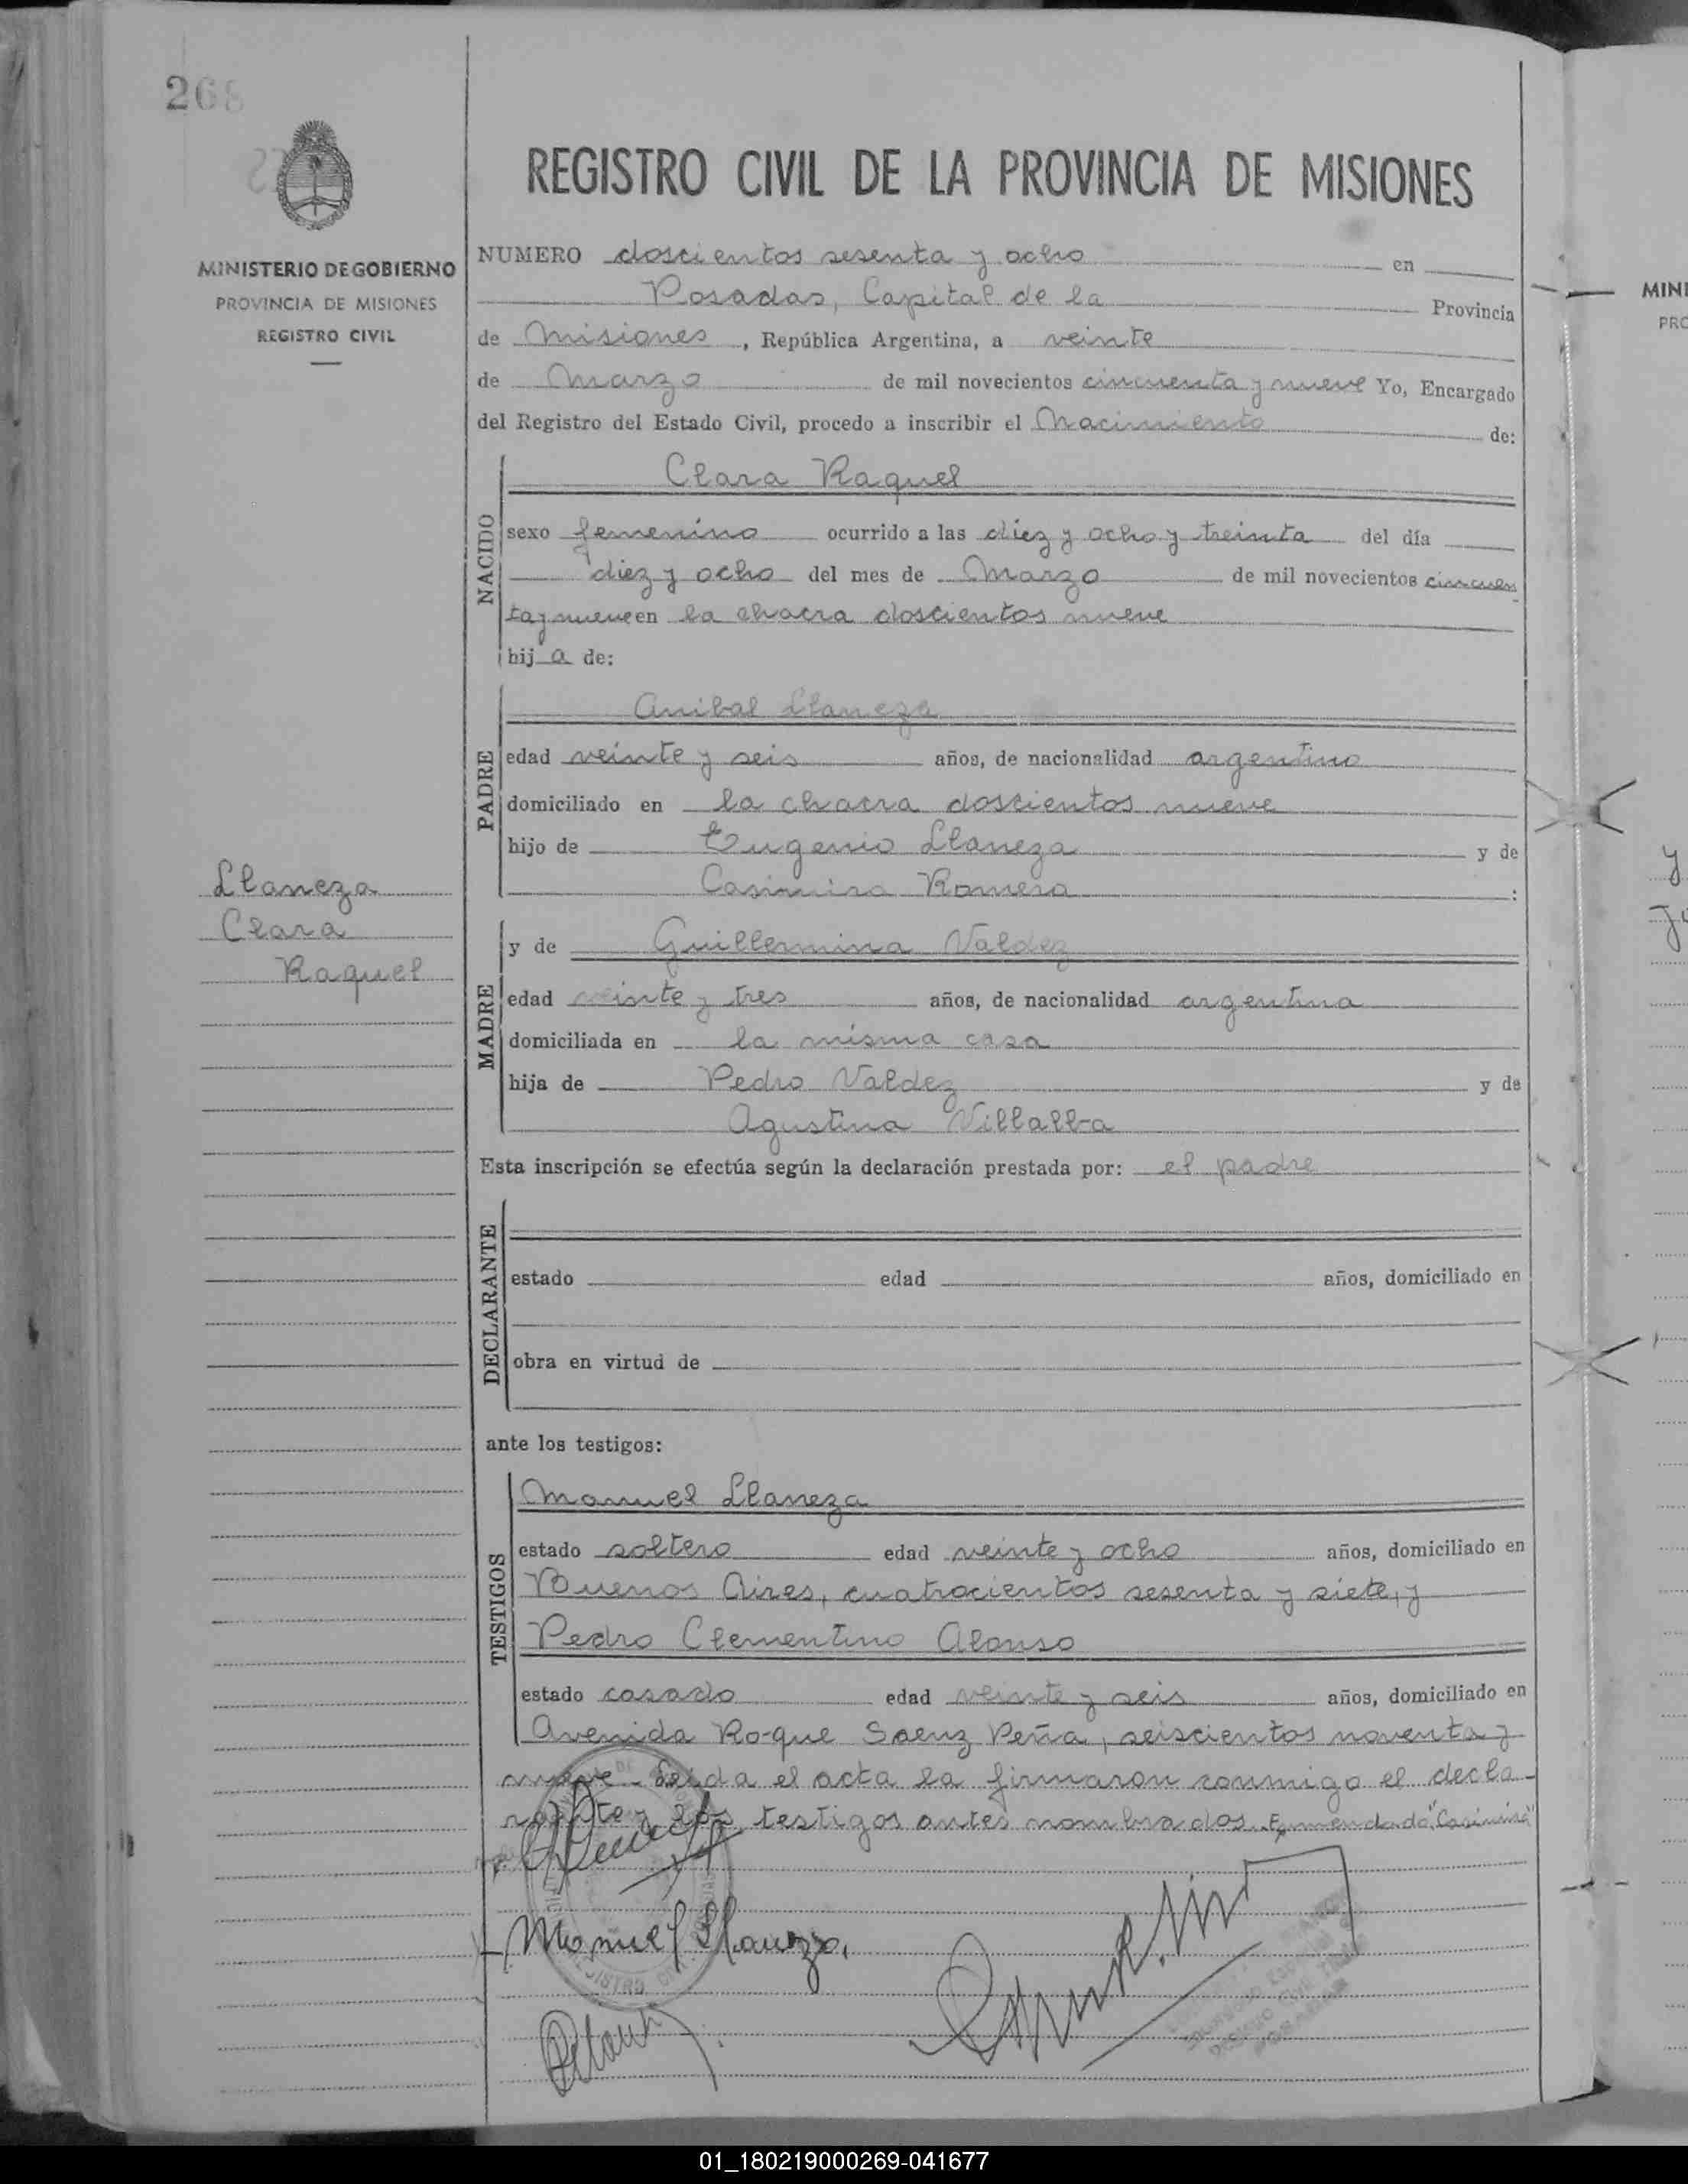 268
MINISTERIO DE GOBIERNO
PROVINCIA DE MISIONES
REGISTRO CIVIL
Llaneza
Clara
Raquel
REGISTRO CIVIL DE LA PROVINCIA DE MISIONES
NUMERO doscientos sesenta y ocho en
Posadas, Capital de la Provincia
de Misiones, República Argentina, a veinte
de Marzo de mil novecientos cincuenta y nueve Yo, Encargado
del Registro del Estado Civil, procedo a inscribir el Nacimiento de:
NACIDO
Clara Raquel
sexo femenino ocurrido a las diez y ocho y treinta del día
diez y ocho del mes de Marzo de mil novecientos cincuen
ta y nueve en la chacra doscientos nueve
hija de:
PADRE
Anibal Llaneza
edad veinte y seis años, de nacionalidad argentino
domiciliado en la chacra doscientos nueve
hijo de Eugenio Llaneza y de
Casimira Romero:
MADRE
y de Guillermina Valdez
edad veinte y tres años, de nacionalidad argentina
domiciliada en la misma casa
hija de Pedro Valdez y de
Agustina Villalba
Esta inscripción se efectúa según la declaración prestada por: el padre
DECLARANTE
estado edad años, domiciliado en
obra en virtud de
ante los testigos:
TESTIGOS
Manuel Llaneza
estado soltero edad veinte y ocho años, domiciliado en
Buenos Aires, cuatrocientos sesenta y siete, y
Pedro Clementino Alonso
estado casado edad veinte y seis años, domiciliado en
Avenida Roque Saenz Peña, seiscientos noventa y
nueve. Leida el acta la firmaron conmigo el decla-
rante y los testigos antes nombrados. Enmendado "Casimira"
Manuel Llaneza
MINI
PRO
01_180219000269-041677